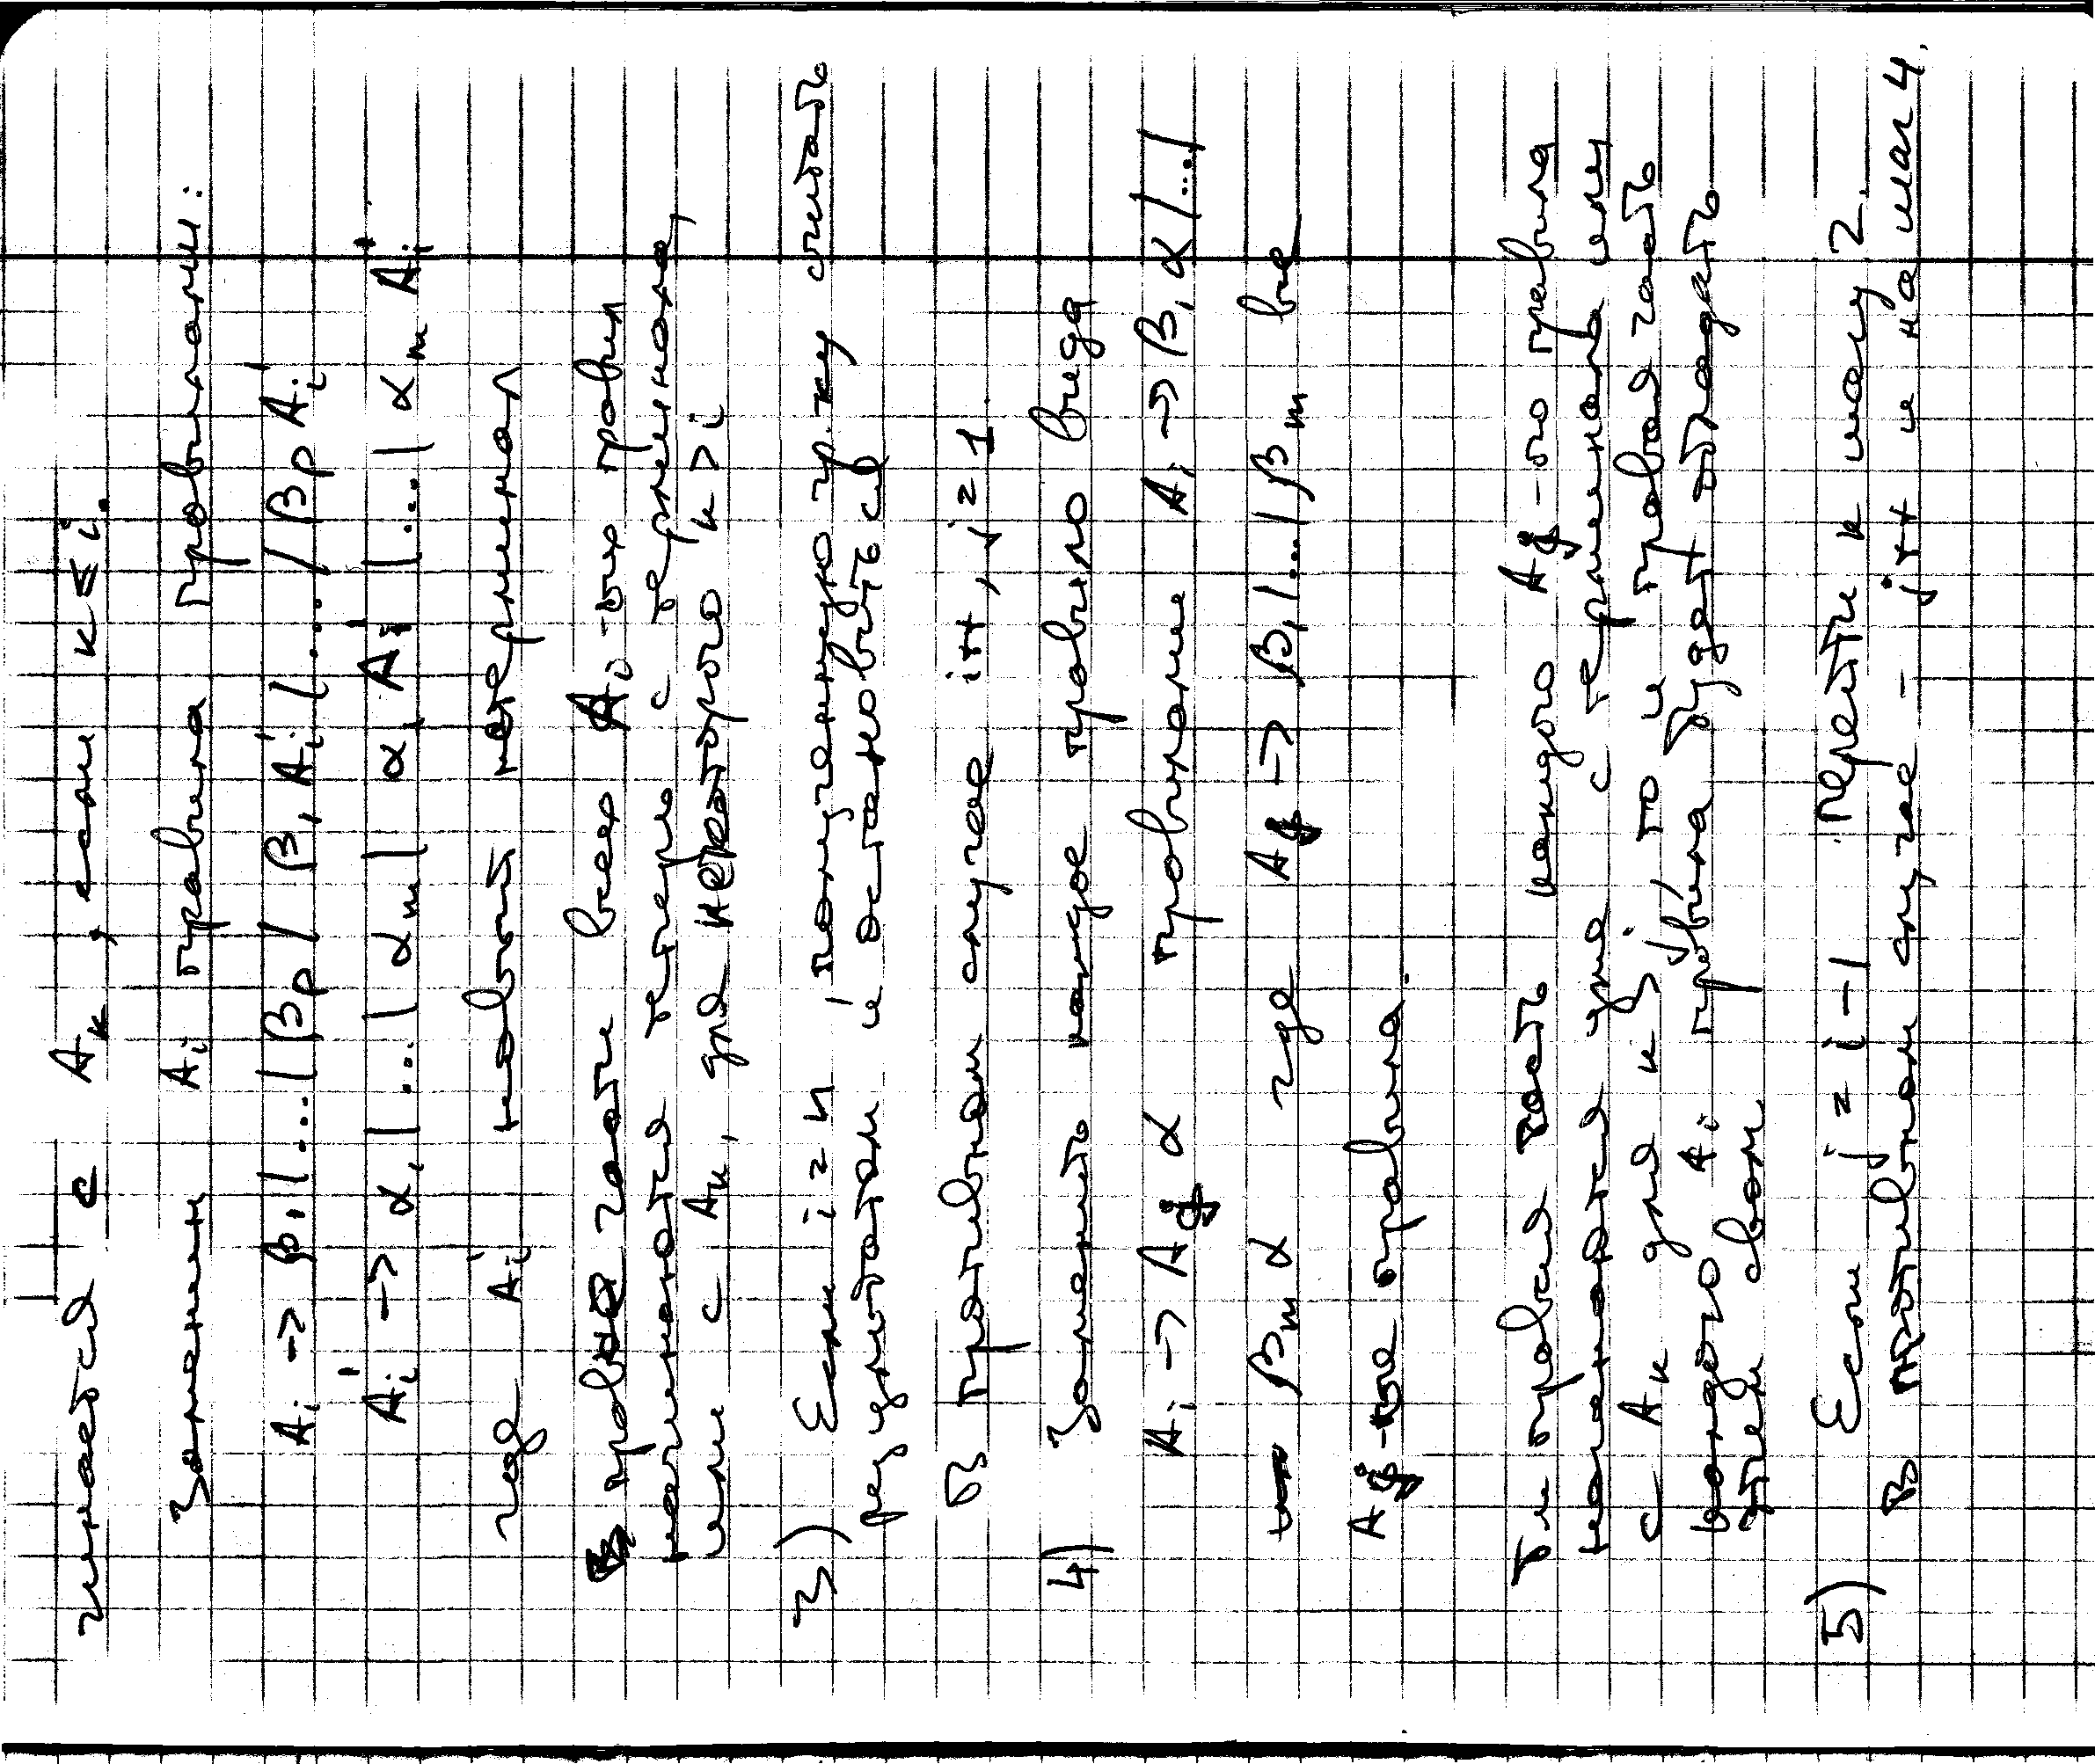 чинается с Aₖ, если k≤i.
Заменим Aᵢ правила правилами:
Aᵢ → β₁|...|βₚ|β₁Aᵢ'|...|βₚAᵢ'
Aᵢ' → α₁|...|αₘ|α₁Aᵢ'|...|αₘAᵢ'
где Aᵢ' новый нетерминал
правые части всех Aᵢ-вых правил
начинаются теперь с терминала,
или с Aₖ, для некоторого k>i
3) Если i=n, полученную гр-ку считать
результатом и остановиться
В противном случае i++, j=1.
4) Заменить каждое правило вида
Aᵢ → Aⱼα правилами Aᵢ → β₁α|...|
βₘα где Aⱼ → β₁|...|βₘ все
Aⱼ-вые правила.
Т.к правая часть каждого Aⱼ-го правила
начинается уже с терминала или
с Aₖ для k>j, то и правая часть
каждого Aᵢ правила будет обладать
этим свом
5) Если j=i-1 перейти к шагу 2.
В противном случае - j++ и на шаг 4.